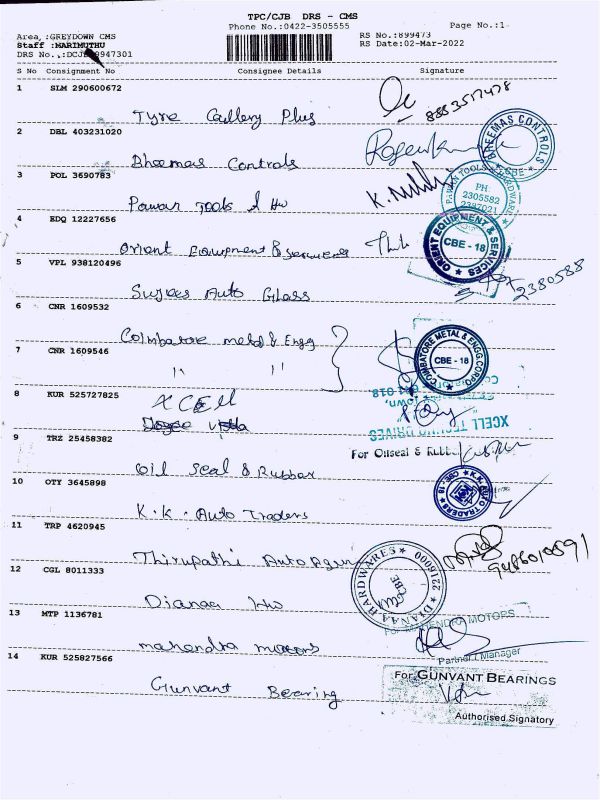 TPC/CJB DRS - CMS
Phone No.:0422-3505555 Page No.:1
Area :GREYDOWN CMS RS No.:899473
Staff :MARIMUTHU RS Date:02-Mar-2022
DRS No.,:DCJ 8947301
S No Consignment No Consignee Details Signature
1 SLM 290600672
Tyre Gallery Plus 8883517478
2 DBL 403231020
Bheemas Controls
BHEEMAS CONTROLS CBE
3 POL 3690783
Pawan Tools & Hw
PAWAN TOOLS HARDWARE PH 2305582 2387021
4 EDQ 12227656
Orient Equipment & Services
ORIENT EQUIPMENT & SERVICES CBE - 18
5 VPL 938120496
2380588
Auto Glass
6 CNR 1609532
Coimbatore metal & Engg
7 CNR 1609546
" "
COIMBATORE METAL & ENGG.CORPO CBE - 18
8 KUR 525727825
XCELL
XCELL TECHNO DRIVES
9 TRZ 25458382
For Oilseal & Rubb
Oil Seal & Rubber
10 OTY 3645898
K.K. Auto Traders
K.K. AUTO TRADERS CBE - 18
11 TRP 4620945
Thirupathi Auto Agen
9486010591
12 CGL 8011333
Dianaa Hw
DIANAA HARDWARES CBE
13 MTP 1136781
For MAHENDRA MOTORS
mahendra motors
Partner / Manager
14 KUR 525827566
For GUNVANT BEARINGS
Gunvant Bearing
Authorised Signatory